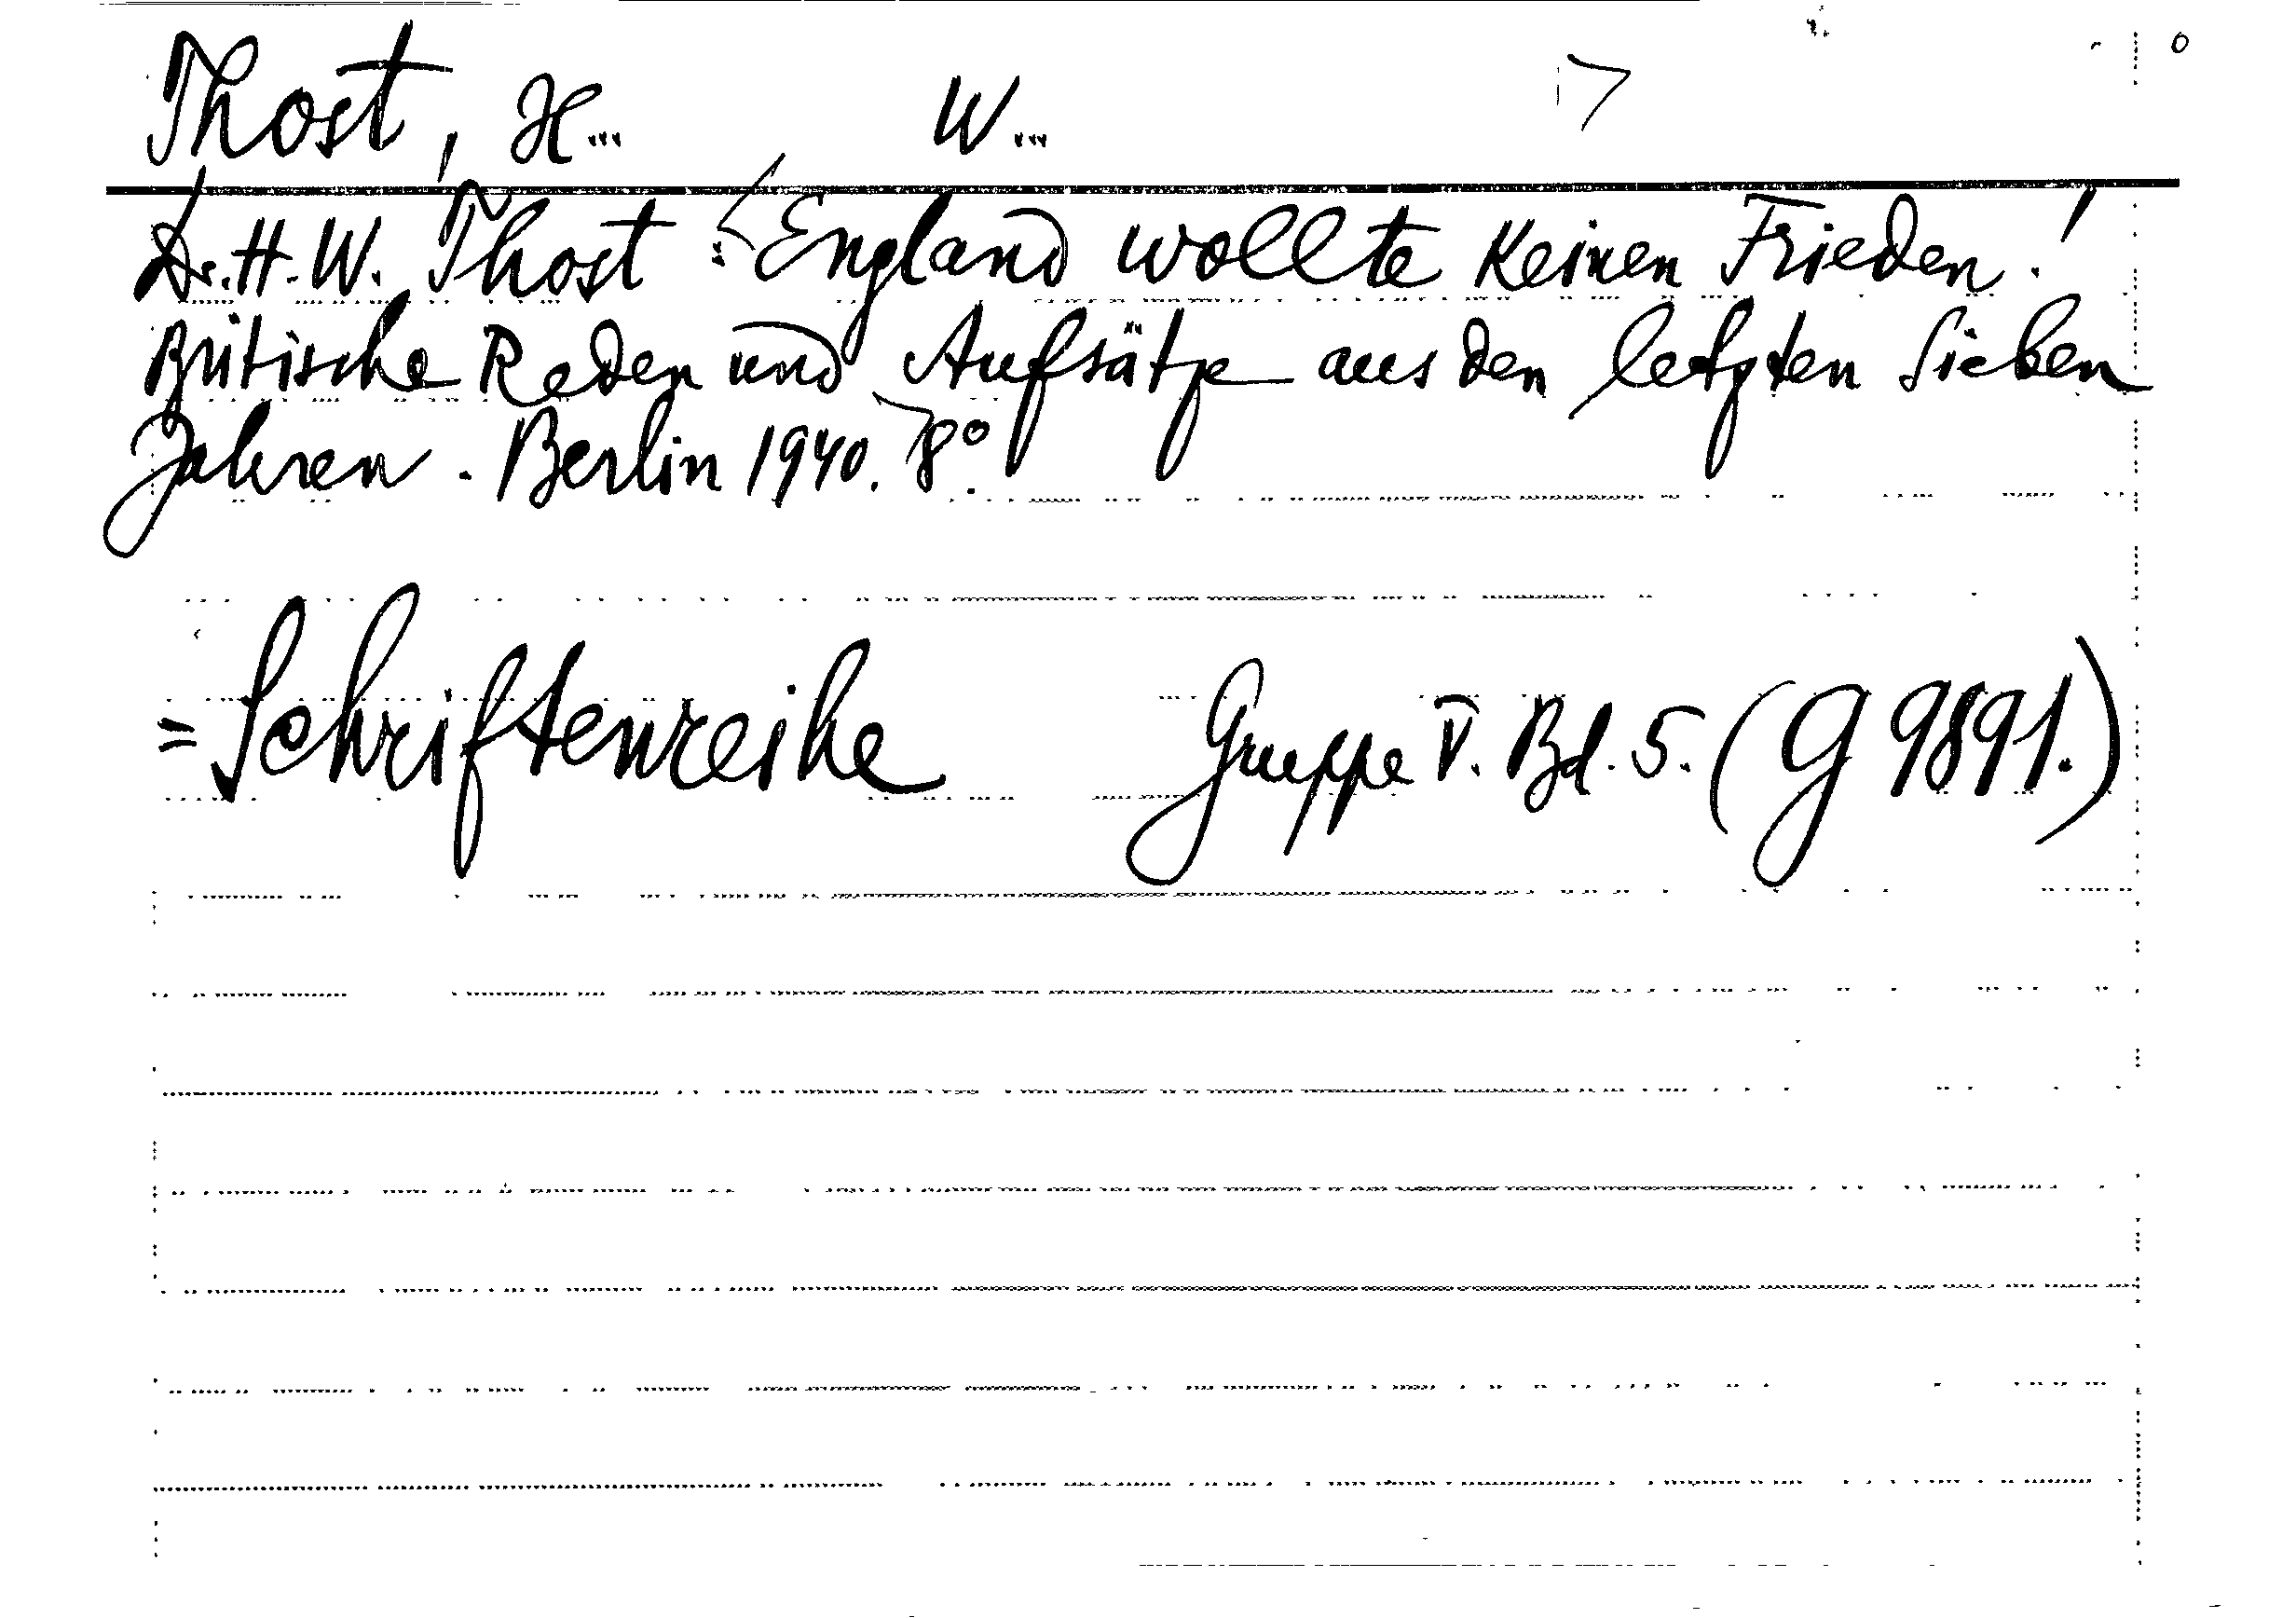 Thost, H... W...
Dr. H. W. Thost: England wollte keinen Frieden!
Britische Reden und Aufsätze aus den letzten sieben
Jahren. Berlin 1940. 8°.
= Schriftenreihe Gruppe V. Bd. 5. (G 9891.)